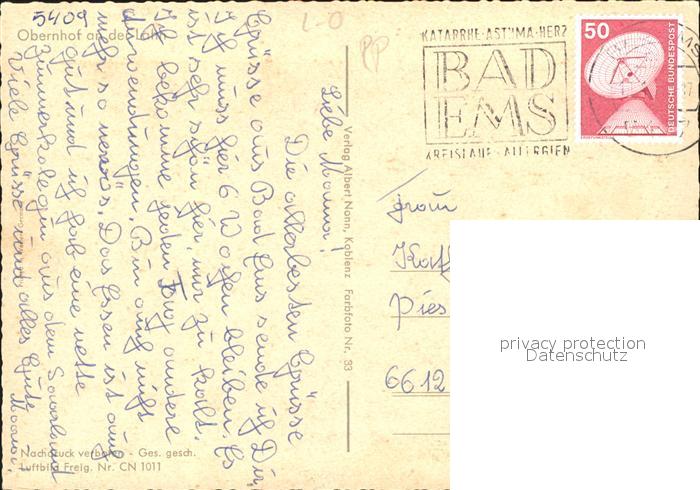 5409
Obernhof an der Lahn
L-O
PP
KATARRHE·ASTHMA·HERZ
BAD
EMS
KREISLAUF·ALLERGIEN
50
DEUTSCHE BUNDESPOST
Liebe Mama!
Die allerbesten Grüsse
Grüsse aus Bad Ems sende ich Dir,
Ich muss hier 6 Wochen bleiben. Es
ist sehr schön hier, nur zu kalt.
Ich bekomme jeden Tag andere
Anwendungen. Bin auch nicht
mehr so nervös. Das Essen ist auch
gut und ich hab eine nette
Zimmerkolegin aus dem Sauerland
Viele Grüsse und alles Gute
Verlag Albert Nonn, Koblenz Farbfoto Nr. 33
Frau
Kath
Pies
6612
privacy protection
Datenschutz
Nachdruck verboten - Ges. gesch.
Luftbild Freig. Nr. CN 1011